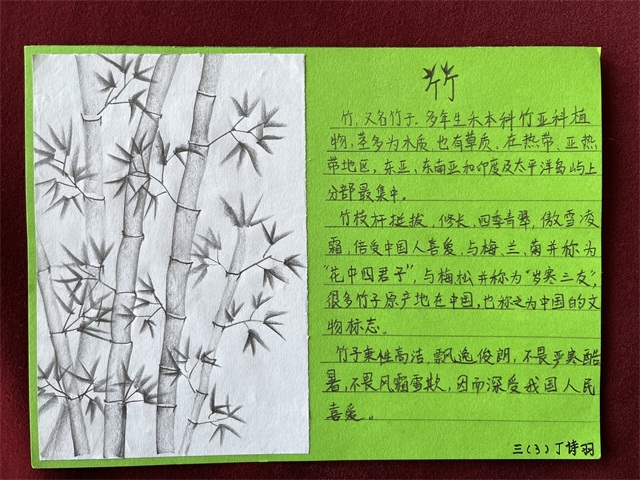 竹
竹,又名竹子.多年生禾本科竹亚科植
物,茎多为木质,也有草质.在热带、亚热
带地区,东亚、东南亚和印度及太平洋岛屿上
分部最集中。
竹枝杆挺拔,修长,四季青翠,傲雪凌
霜,倍受中国人喜爱,与梅、兰、菊并称为
“花中四君子”,与梅松并称为“岁寒三友”,
很多竹子原产地在中国,也称之为中国的文
物标志。
竹子秉性高洁,飘逸俊朗,不畏严寒酷
暑,不畏风霜雪欺,因而深受我国人民
喜爱。
三(3)丁诗羽